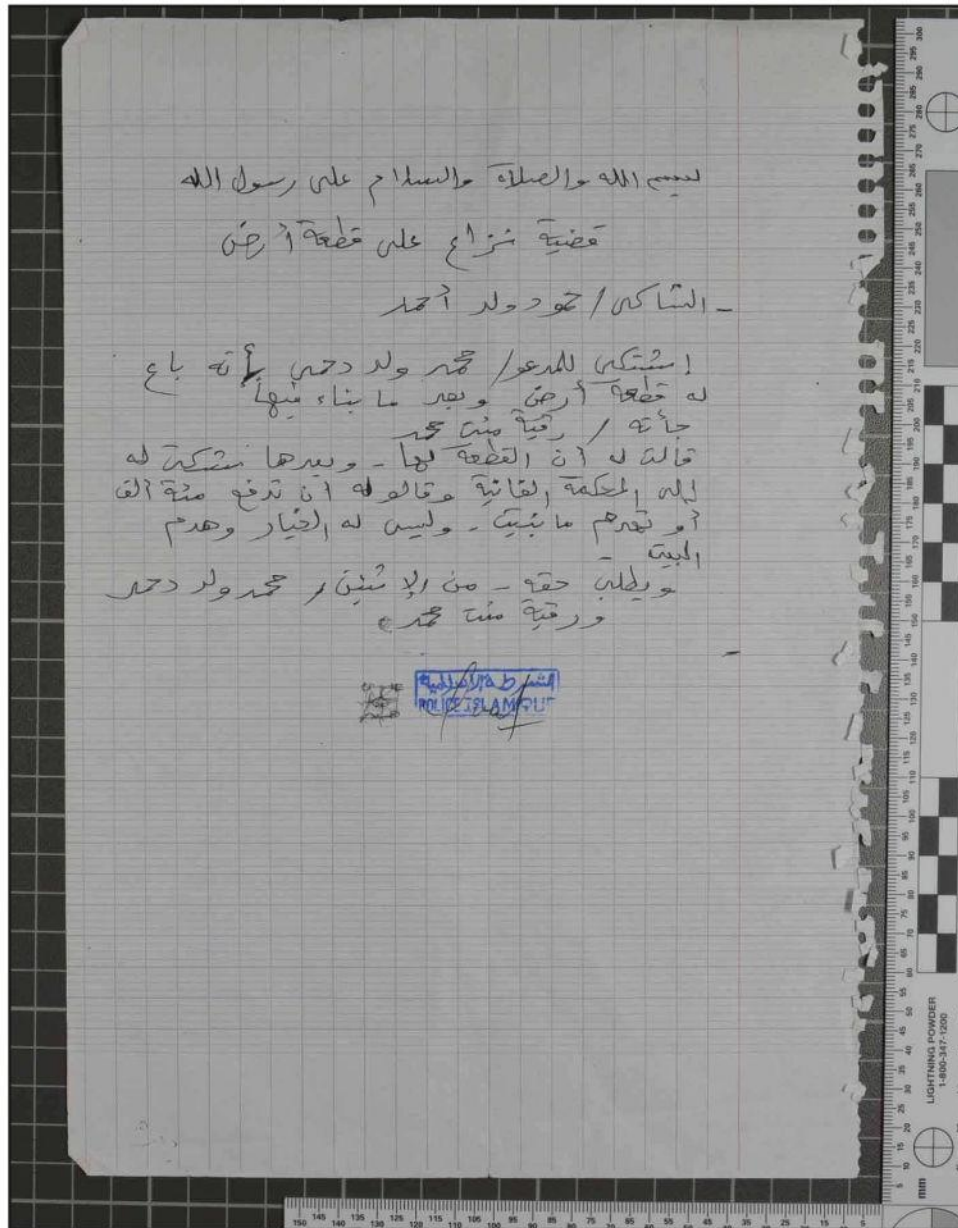 بسم الله والصلاة والسلام على رسول الله
قضية نزاع على قطعة أرض
- الشاكى / حمود ولد أحمد
إشتكى للمدعو / محمد ولد دحمى بأنه باع
له قطعة أرض وبعد ما بناء فيها
جأته / رقية منت محمد
قالت له أن القطعة لها - وبعدها شتكت له
إلى المحكمة القانية وقالو له أن تدفع مئة ألف
أو تهدم ما بنيت - وليس له الخيار وهدم
البيت -
ويطلب حقه - من الإثنين / محمد ولد دحمد
ورقية منت محمد
الشرطة الإسلامية
POLICE ISLAMIQUE
LIGHTNING POWDER
1-800-347-1200
mm